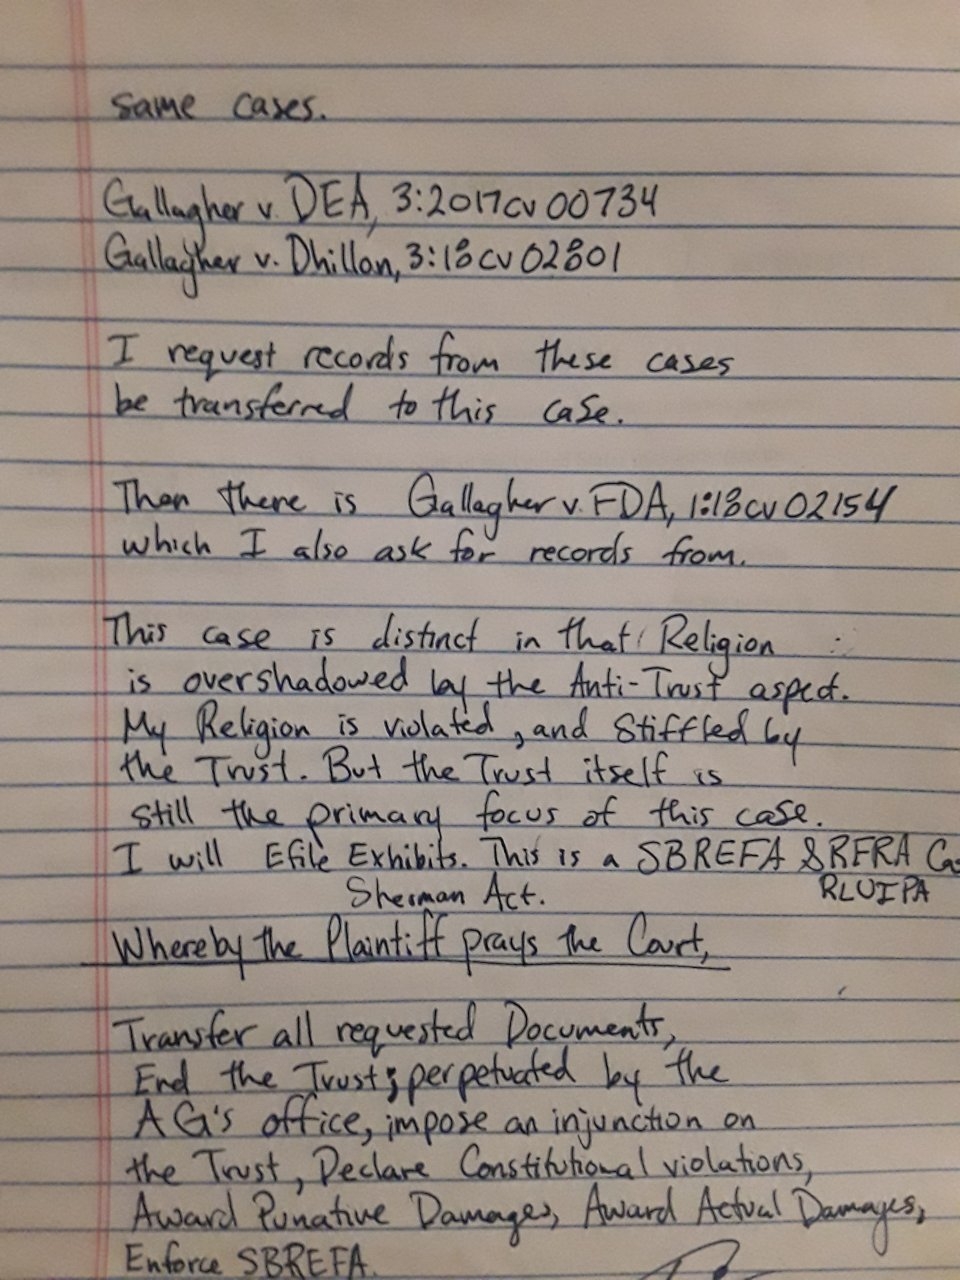 same cases.
Gallagher v. DEA, 3:2017cv00734
Gallagher v. Dhillon, 3:18cv02801
I request records from these cases
be transferred to this case.
Then there is Gallagher v. FDA, 1:18cv02154
which I also ask for records from.
This case is distinct in that Religion
is overshadowed by the Anti-Trust aspect.
My Religion is violated, and Stiffled by
the Trust. But the Trust itself is
still the primary focus of this case.
I will Efile Exhibits. This is a SBREFA & RFRA Ca
Sherman Act. RLUIPA
Whereby the Plaintiff prays the Court,
Transfer all requested Documents,
End the Trust; perpetuated by the
AG's office, impose an injunction on
the Trust, Declare Constitutional violations,
Award Punative Damages, Award Actual Damages,
Enforce SBREFA.